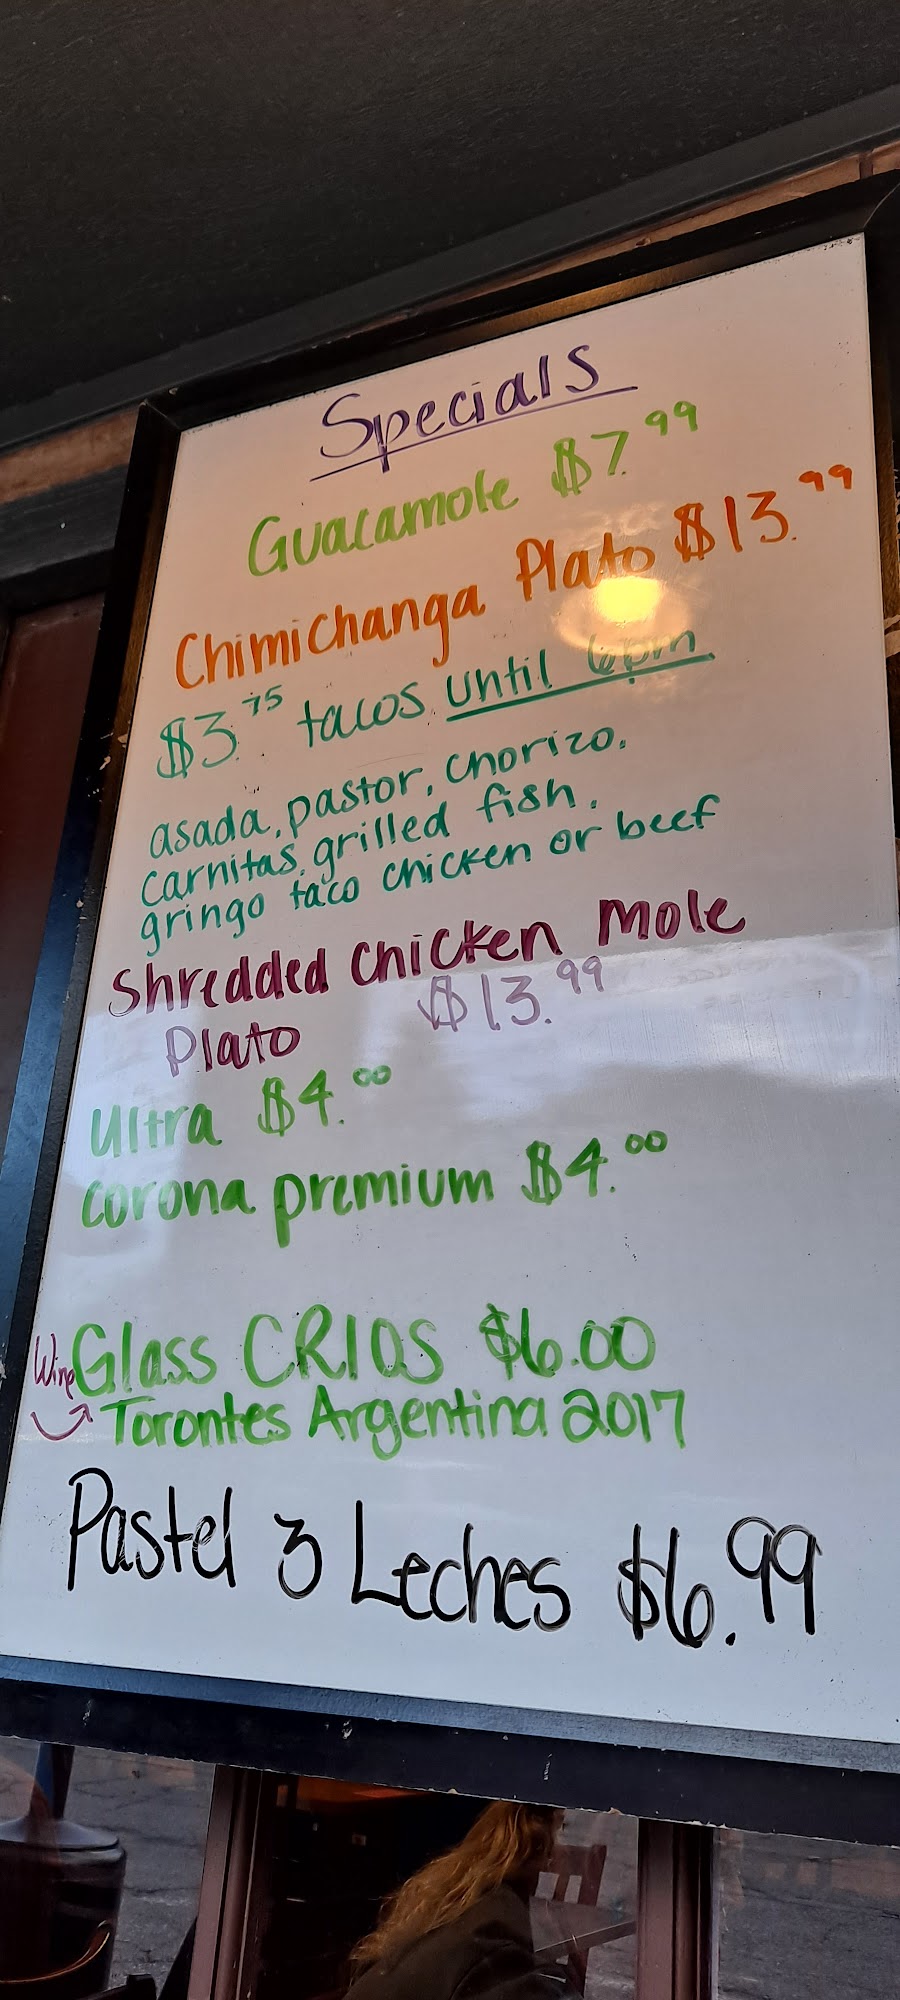 Specials
Guacamole $7.99
Chimichanga Plato $13.99
$3.75 tacos until 6pm
asada, pastor, chorizo,
carnitas, grilled fish,
gringo taco chicken or beef
Shredded chicken mole
Plato $13.99
ultra $4.00
corona premium $4.00
Wine Glass CRIOS $6.00
Torontes Argentina 2017
Pastel 3 Leches $6.99